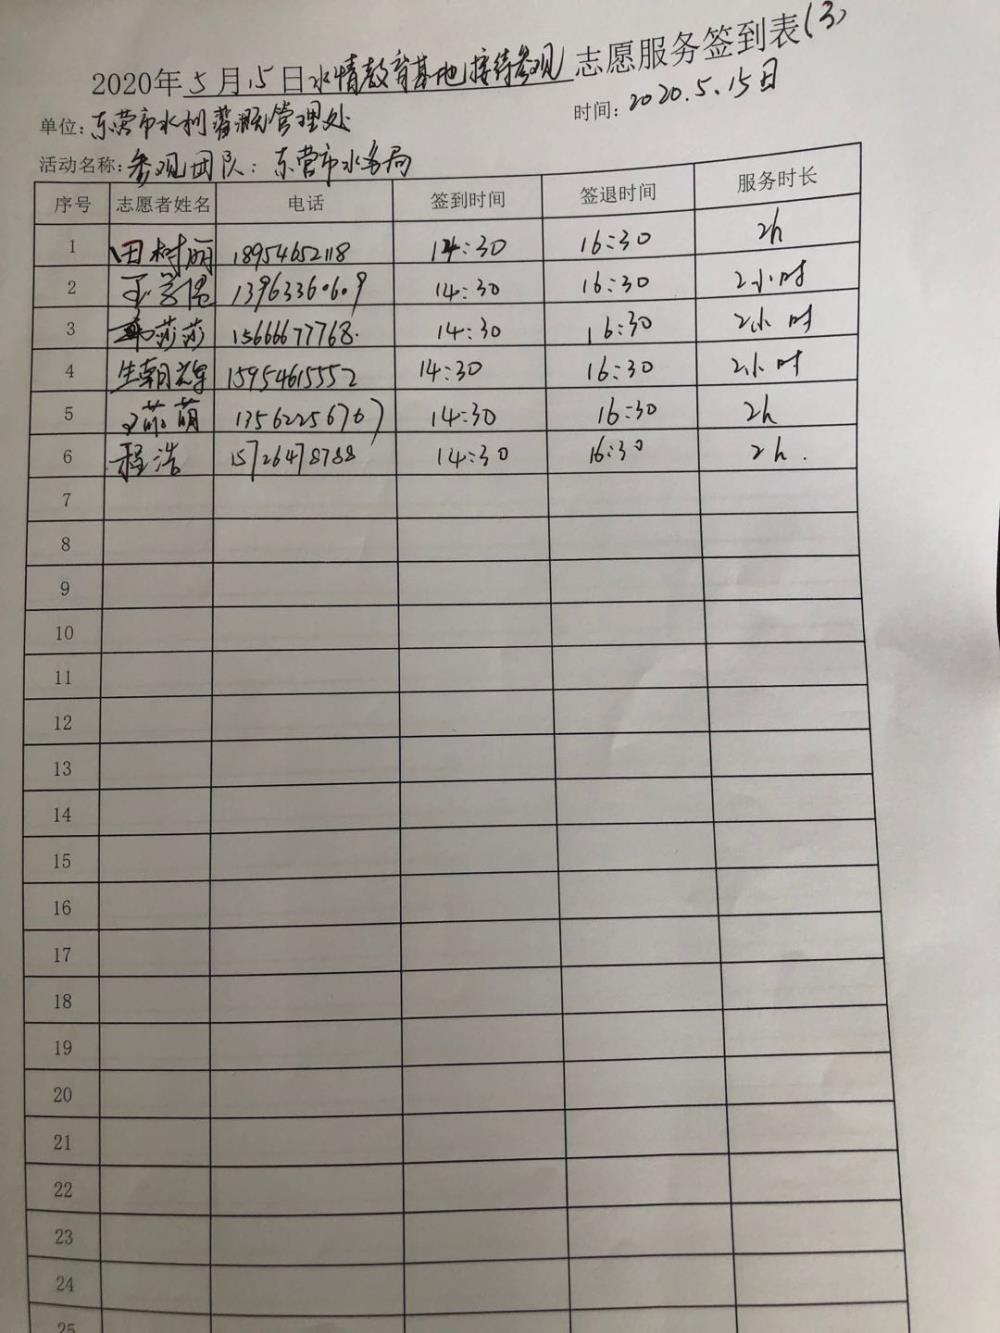 2020年5月15日水情教育基地接待参观志愿服务签到表(3)
单位:东营市水利灌溉管理处 时间:2020.5.15日
活动名称:参观团队:东营市水务局
序号 志愿者姓名 电话 签到时间 签退时间 服务时长
1 田树丽 18954652118 14:30 16:30 2h
2 13963360609 14:30 16:30 2小时
3 莎莎 15666677768. 14:30 16:30 2小时
4 生朝光 15954615552 14:30 16:30 2小时
5 王萌萌 13562256767 14:30 16:30 2h
6 程浩 15726478788 14:30 16:30 2h.
7
8
9
10
11
12
13
14
15
16
17
18
19
20
21
22
23
24
25